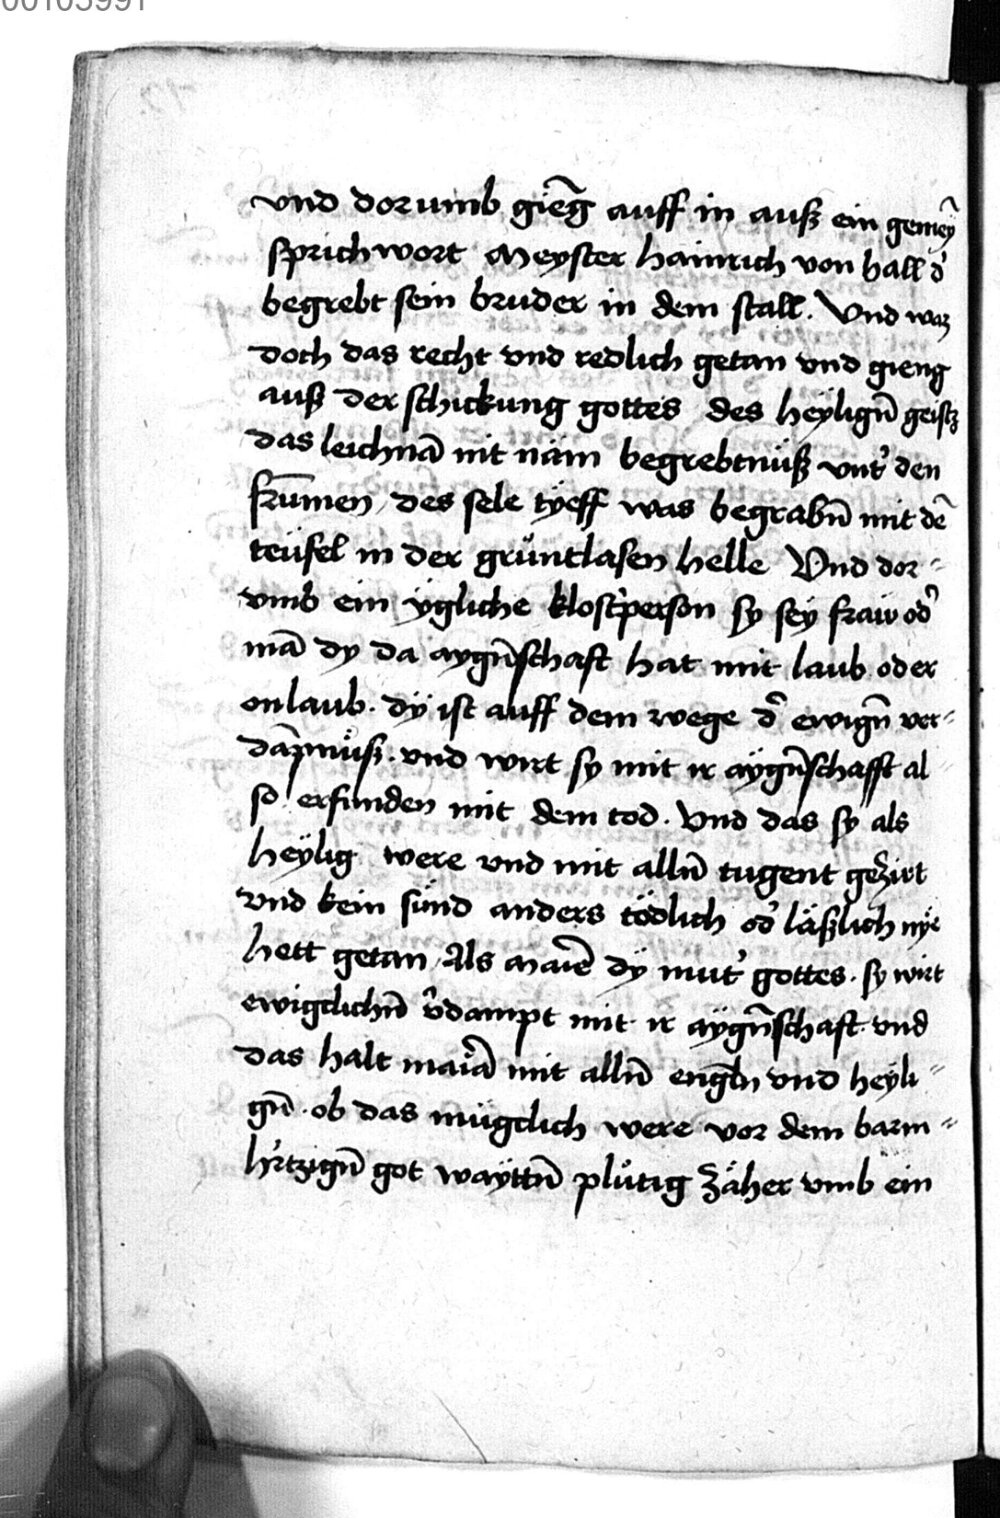 00103991
vnd dorumb gieg̃ auff in auß ein gemeȳ
sprichwort Meyster hainrich von hall d̾
begrebt sein bruder in dem stall. Vnd waz
doch das recht vnd redlich getan vnd gieng
auß der schickung gottes des heÿlign̄ geistz
das leichnā nit näm begrebtnüß vnt̾ den
frūmen des sele tÿeff was begrabn̄ mit dē
teüfel in der grüntlasen helle Vnd dor-
vmb ein ÿgliche klost̾person sy seÿ fraw od̾
mā dy da aygn̄schaft hat mit laub oder
on laub. dÿ ist auff dem wege d̾ ewign̄ ver-
dāpnüß. vnd wirt sy mit ir aÿgn̄schafft al
so erfunden mit dem tod. Vnd das sy als
heÿlig were vnd mit alln̄ tugent geziert
vnd kein sünd anders tödlich od̾ läßlich nÿe
hett getan Als Mariē dÿ mut̾ gottes. sy wirt
ewigclichn̄ v̾dampt mit ir aÿgn̄schaft vnd
das halt mariā mit alln̄ engeln vnd heÿli-
gn̄. ob das mügclich were vor dem barm-
h̾rtzign̄ got waÿttn̄ plütig zäher vmb ein